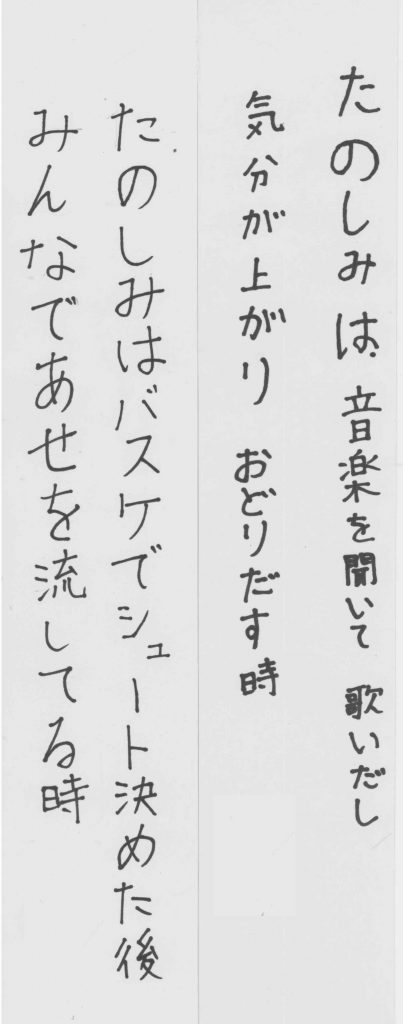 たのしみは、音楽を聞いて　歌いだし
気分が上がり　おどりだす時
たのしみはバスケでシュート決めた後
みんなであせを流してる時